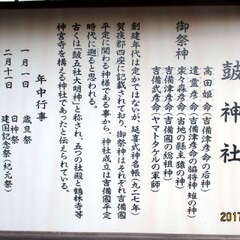 鼓神社
御祭神
高田姫命（吉備津彦命の后神）
遣霊彦命（吉備津彦命の脇侍神）
楽々森彦命（吉地の縣主の祖）
吉備津彦命（吉備国の総祖神）
吉備武彦命（ヤマトタケルの軍師）
創建年代は定かではないが、延喜式神名帳（九二七年）
賀夜郡四座に記載されており、御祭神はそれぞれ吉備国
平定に関わる神様である事から、神社成立は吉備国平定
時代に遡ると思われる。
古くは「皷五社大明神」と称され、五つの社殿と鶴林寺等
神宮寺を構える神社であったと伝えられている。
年中行事
一月一日
歳旦祭
日神祭
二月十一日
建国記念祭（紀元祭）
2017